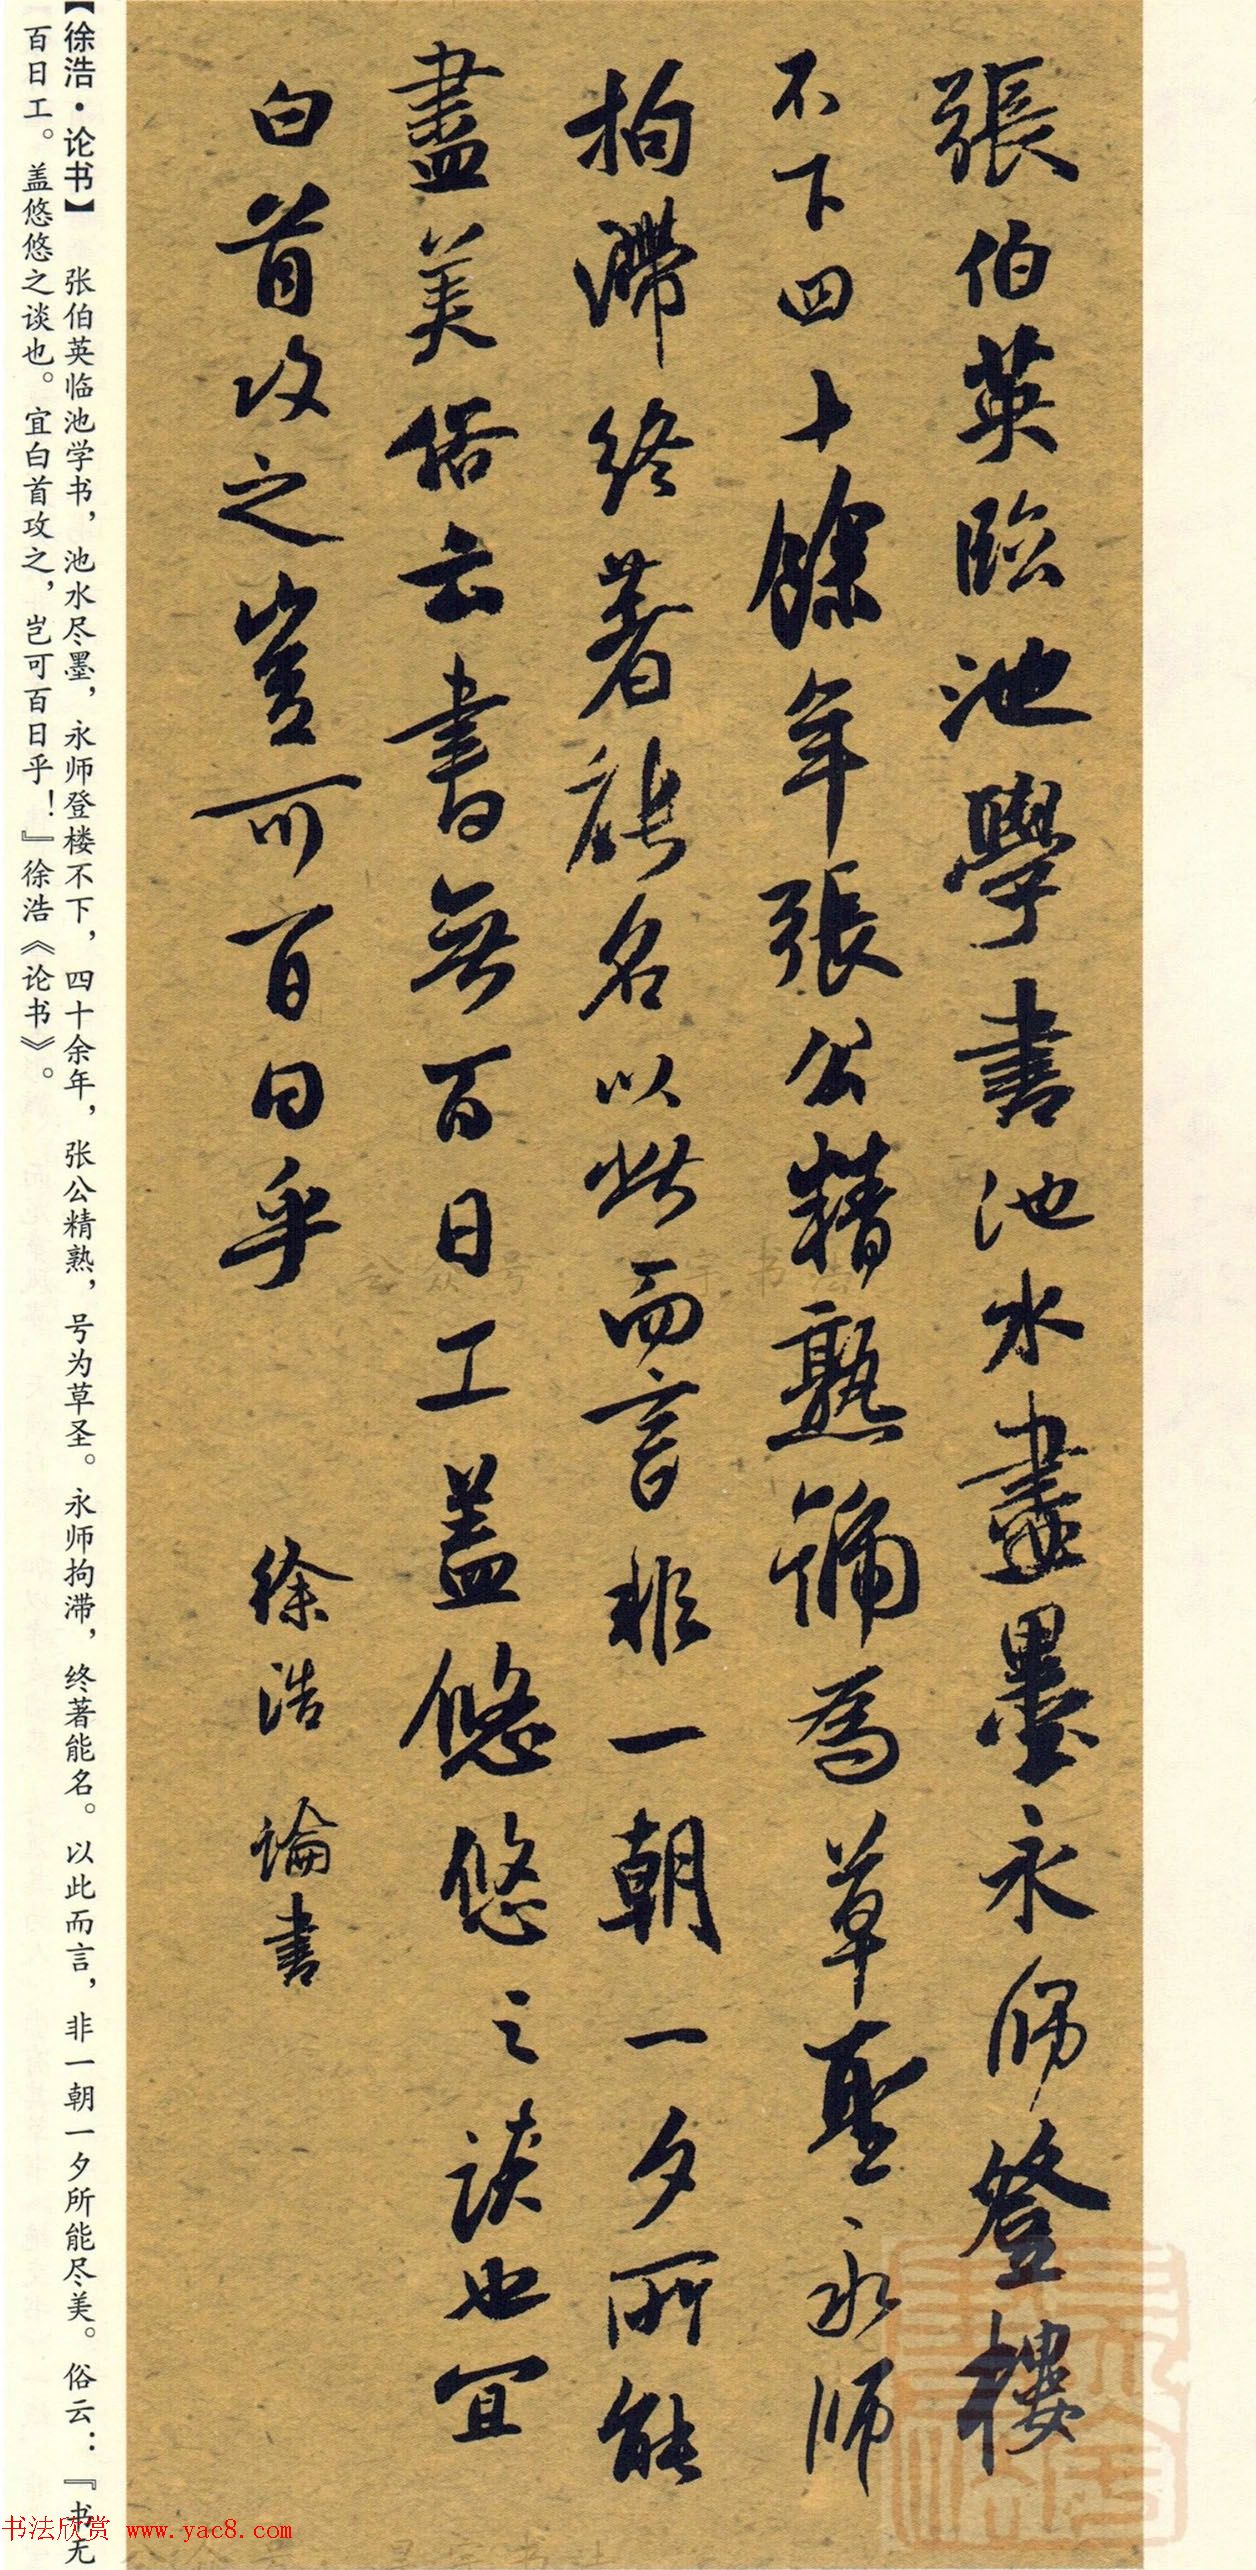 張伯英臨池學書池水盡墨永師登樓
不下四十餘年張公精熟號為草聖永師
拘滯終著能名以此而言非一朝一夕所能
盡美俗云書無百日工蓋悠悠之談也宜
白首攻之豈可百日乎 徐浩論書
【徐浩·论书】 张伯英临池学书，池水尽墨，永师登楼不下，四十余年，张公精熟，号为草圣。永师拘滞，终著能名。以此而言，非一朝一夕所能尽美。俗云：『书无
百日工。盖悠悠之谈也。宜白首攻之，岂可百日乎！』徐浩《论书》。
书法欣赏 www.yac8.com